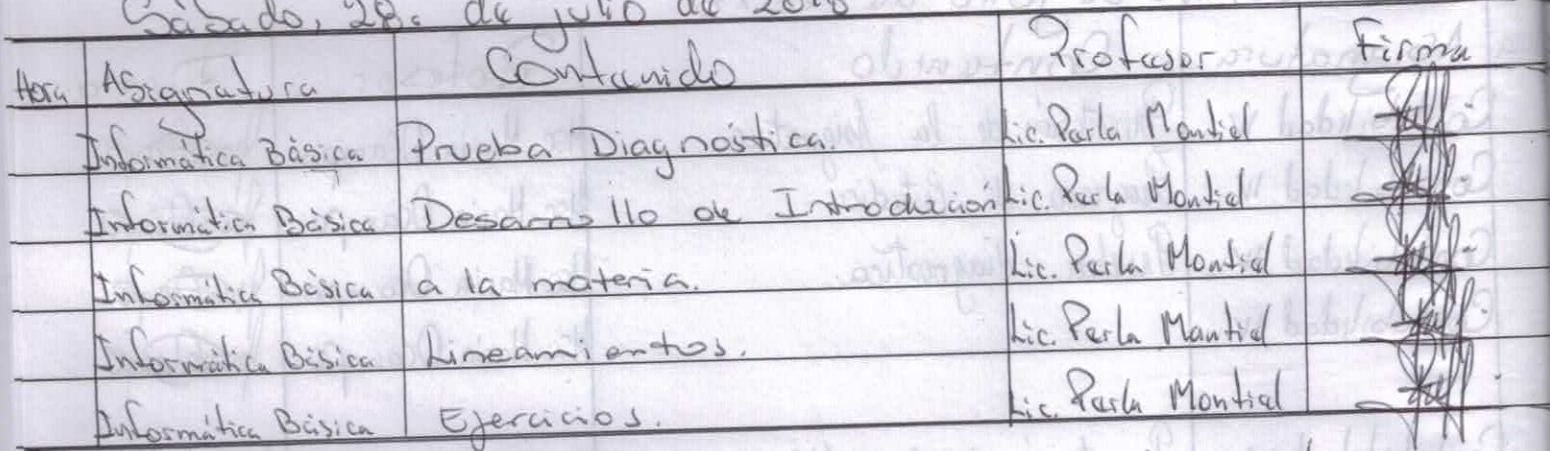 Sábado, 28 de julio de 2018
Hora Asignatura Contenido Profesor Firma
Informática Básica Prueba Diagnóstica. Lic. Perla Montiel
Informática Básica Desarrollo de Introducción Lic. Perla Montiel
Informática Básica a la materia. Lic. Perla Montiel
Informática Básica Lineamientos. Lic. Perla Montiel
Informática Básica Ejercicios. Lic. Perla Montiel